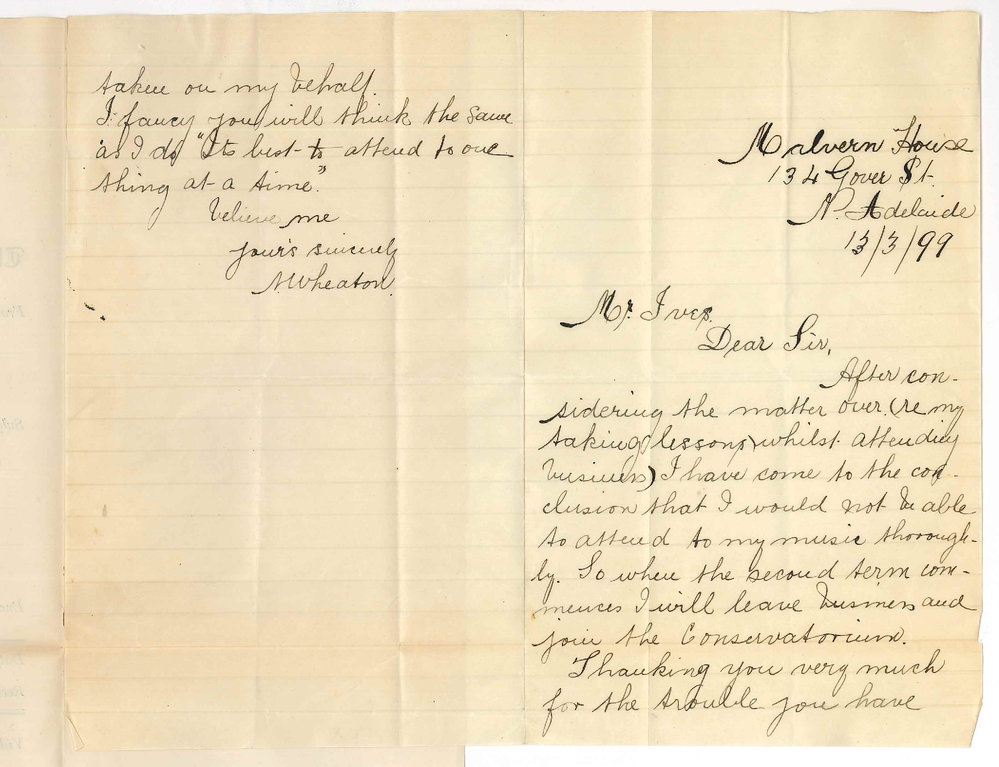 Malvern House
134 Gover St.
N. Adelaide
13/3/99
Mr. Ives.
Dear Sir,
After con-
sidering the matter over. (re my
taking (lessons) whilst attending
business) I have come to the con-
clusion that I would not be able
to attend to my music thorough-
ly. So when the second term com-
mences I will leave business and
join the Conservatorium.
Thanking you very much
for the trouble you have
taken on my behalf.
I fancy you will think the same
as I do "Its best to attend to one
thing at a time."
believe me
your's sincerely
A Wheaton.